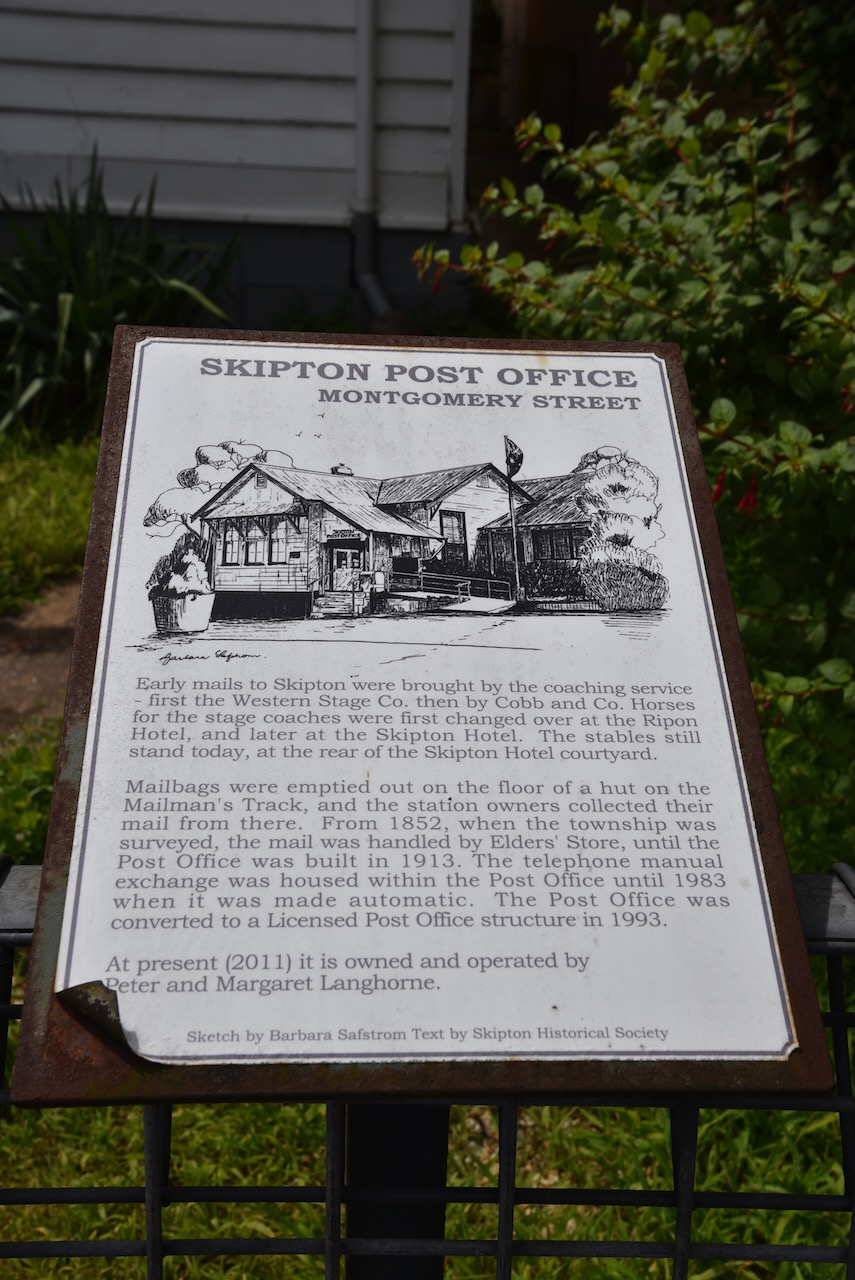 SKIPTON POST OFFICE
MONTGOMERY STREET
Barbara Safstrom.
Early mails to Skipton were brought by the coaching service
- first the Western Stage Co. then by Cobb and Co. Horses
for the stage coaches were first changed over at the Ripon
Hotel, and later at the Skipton Hotel. The stables still
stand today, at the rear of the Skipton Hotel courtyard.
Mailbags were emptied out on the floor of a hut on the
Mailman's Track, and the station owners collected their
mail from there. From 1852, when the township was
surveyed, the mail was handled by Elders' Store, until the
Post Office was built in 1913. The telephone manual
exchange was housed within the Post Office until 1983
when it was made automatic. The Post Office was
converted to a Licensed Post Office structure in 1993.
At present (2011) it is owned and operated by
Peter and Margaret Langhorne.
Sketch by Barbara Safstrom Text by Skipton Historical Society